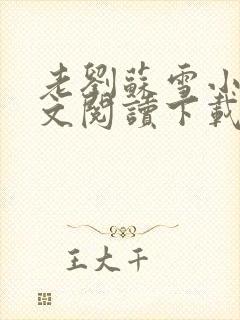 老劉蘇雪小
文閱讀下載
王大干